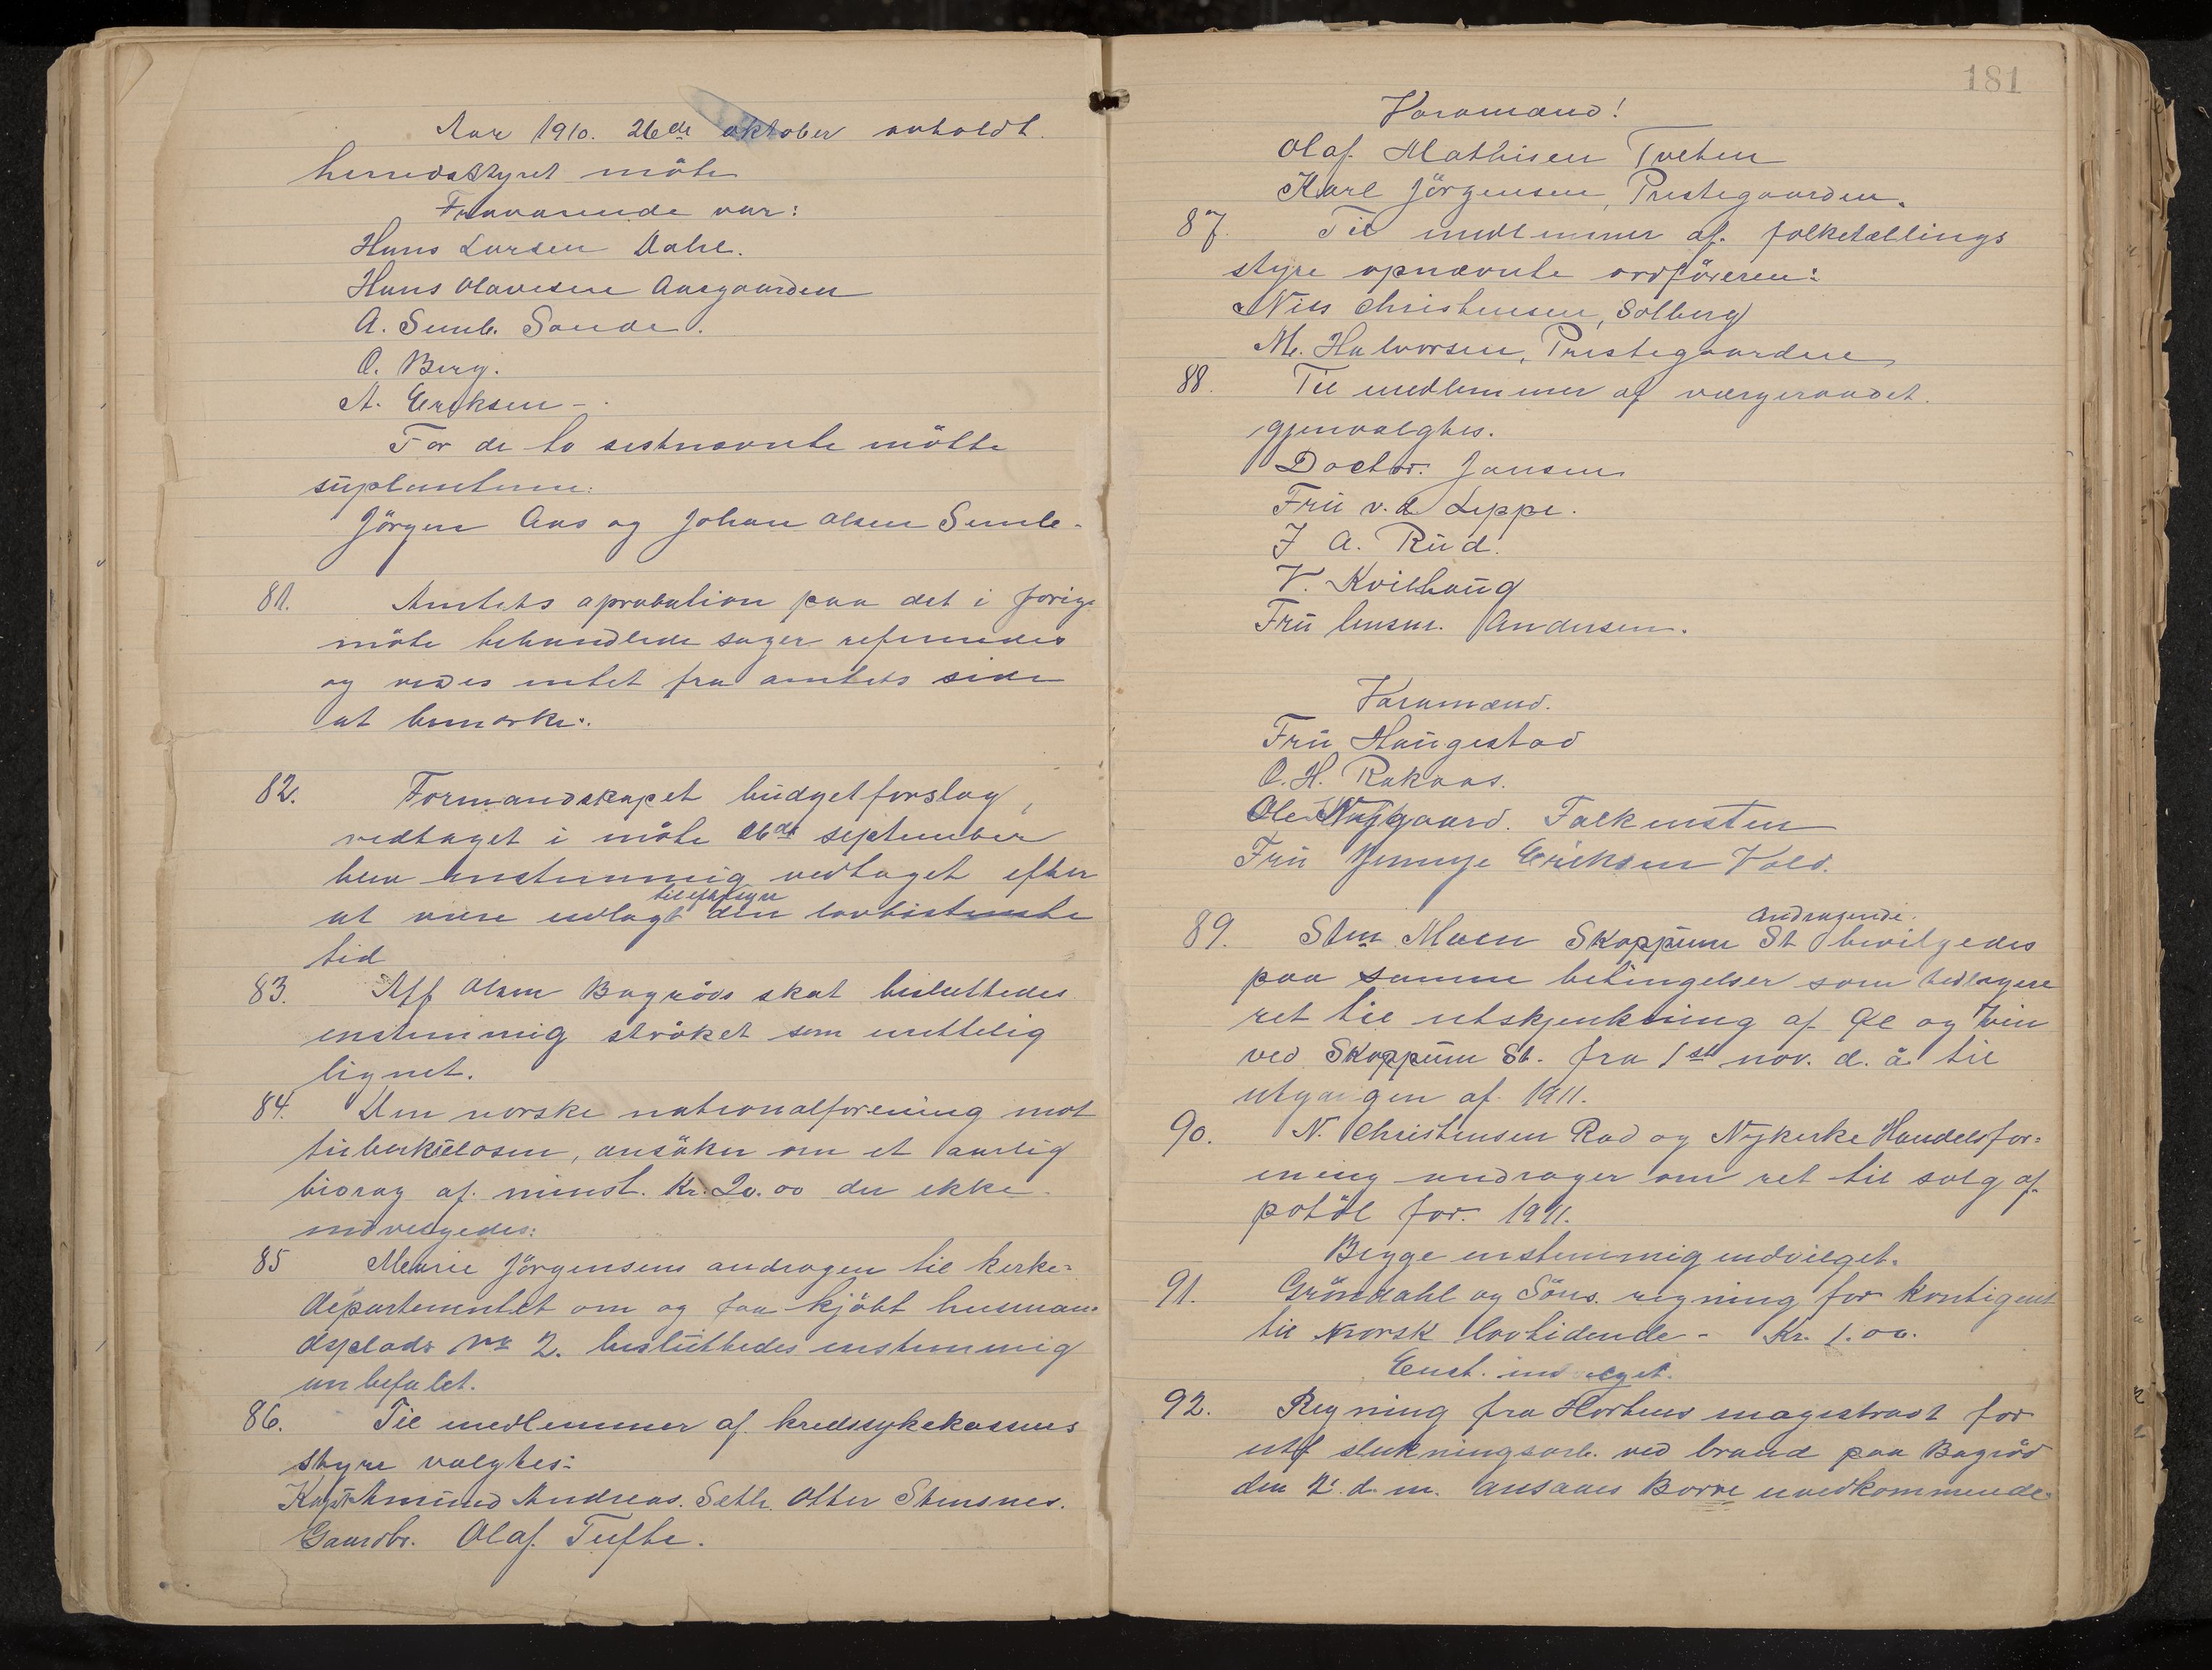 Aar 1910. 26de oktober avholdt
herredsstyret möte
Fraværende var:
Hans Larsen Dahl.
Hans Olavesen Aasgaarden
A. Semb. Sande.
O. Berg.
A. Eriksen -
For de to sestnævnte mötte
suplanterne:
Jörgen Aas og Johan Olsen Semb.
81. Amtets aprobation paa det i forige
möte behandlede sager refereredes
og vides intet fra amtets side
at bemærke.
82. Formandskapet budgetforslag,
vedtaget i möte 26de september
blev enstemmig vedtaget efter
tileftersyn
at være utlagt den lovbestemte
tid
83. Alf Olsen Bagröds skat besluttedes
enstemmig ströket som urettelig
lignet.
84. Den norske nationalforening mot
tuberkulosen, ansöker om et aarlig
bidrag af minst. Kr. 20.00 der ikke
indvilgedes:
85 Marie Jörgensens andragen til kirke-
departementet om og faa kjöbt husman-
dsplads No 2. besluttedes enstemmig
anbefalet.
86. Til medlemmer af kredssykekassens
styre valgtes:
Kapt Amund Andreas. Seth. Otter Stensnes.
Gaardbr. Olaf Tufte.
181
Varamænd!
Olaf Mathisen Tveten
Karl Jörgensen, Prestegaarden.
87. Til medlemmer af folketællings
styre opnævnte ordföreren:
Nils Christensen, Solberg
M. Halvorsen, Prestegaarden
88. Til medlemmer af værgeraadet.
gjenvalgtes.
Doctor. Jansen
Fru v. d Lippe.
J A. Rud.
V. Kvilhaug
Fru lensm. Andersen.
Varamænd.
Fru Haugestad
O. H. Rakaas.
Ole Nygaard. Falkensten
Fru Jennye Eriksen Vold.
andragende.
89. Sten Moen Skoppum St bevilgedes
paa samme betingelser som tidligere
ret til utskjenkning af Öl og Vin
ved Skoppum St. fra 1st nov. d. å til
utgangen af 1911.
90. N. Christensen Rød og Nykirke Handelsfor-
ening andrager om ret til salg af
potöl for 1911.
Begge enstemmig indvilget.
91. Gröndahl og Söns. regning for kontigent
til Norsk lovtidende - Kr. 1.00.
Enst. indvilget.
92. Regning fra Hortens magistrat for
utf slukningsarb. ved brand paa Bagröd
den 2. d. m. ansaaes Borre uvedkommende.